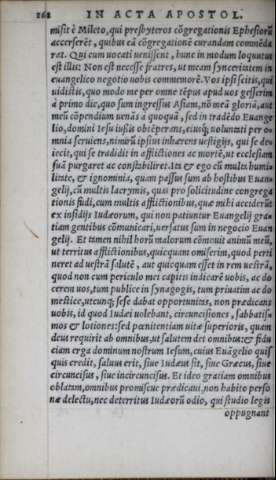 162 IN ACTA APOSTOL.
misit è Mileto, qui presbyteros cõgregationis Ephesiorũ
accerserēt, quibus eã cõgregationē curandam commēda
rat. Qui cum uocati uenissent, hunc in modum loquutus
est illis: Non est necesse fratres, ut meam synceritatem in
euangelico negotio uobis commemorē. Vos ipsi scitis, qui
uidistis, quo modo me per omne tēpus apud uos gesserim
à primo die, quo sum ingressus Asiam, nõ meã gloriã, aut
meũ cõpendium uenãs à quoquã, sed in tradēdo Euange
lio, domini Iesu iussis obtēperans, eiusq́; uoluntati per om
nia seruiens, nimirũ ipsius inhærens uestigijs, qui se deie
iecit, qui se tradidit in afflictiones ac mortē, ut ecclesiam
suã pararet ac constabiliret. Ita & ego cũ multa humi-
litate, & ignominia, quam passus sum ab hostibus Euan
gelij, cũ multis lacrymis, quas pro solicitudine congrega
tionis fudi, cum multis afflictionibus, quæ mihi acciderũt
ex insidijs Iudæorum, qui non patiuntur Euangelij gra
tiam gentibus cõmunicari, uersatus sum in negocio Euan
gelij. Et tamen nihil horũ malorum cõmouit animũ meũ,
ut territus afflictionibus, quicquam omiserim, quod perti
neret ad uestrã salutē, aut quicquam esset in rem uestrã,
quod non cum periculo mei capitis indicarē uobis, ac do
cerem uos, tum publice in synagogis, tum priuatim ac do
mestice, utcunq; sese dabat opportunitas, non prædicans
uobis, id quod Iudæi uolebant, circuncisiones, sabbatis
mos & lotiones: sed pœnitentiam uitæ superioris, quam
deus requirit ab omnibus, ut salutem det omnibus: & fidu
ciam erga dominum nostrum Iesum, cuius Euãgelio quis
quis credit, saluus erit, siue Iudæus sit, siue Græcus, siue
circuncisus, siue incircuncisus. Et ideo gratiam omnibus
oblatam, omnibus promiscue prædicaui, non habito perso
næ delectu, nec deterritus Iudæorũ odio, qui studio legis
oppugnant